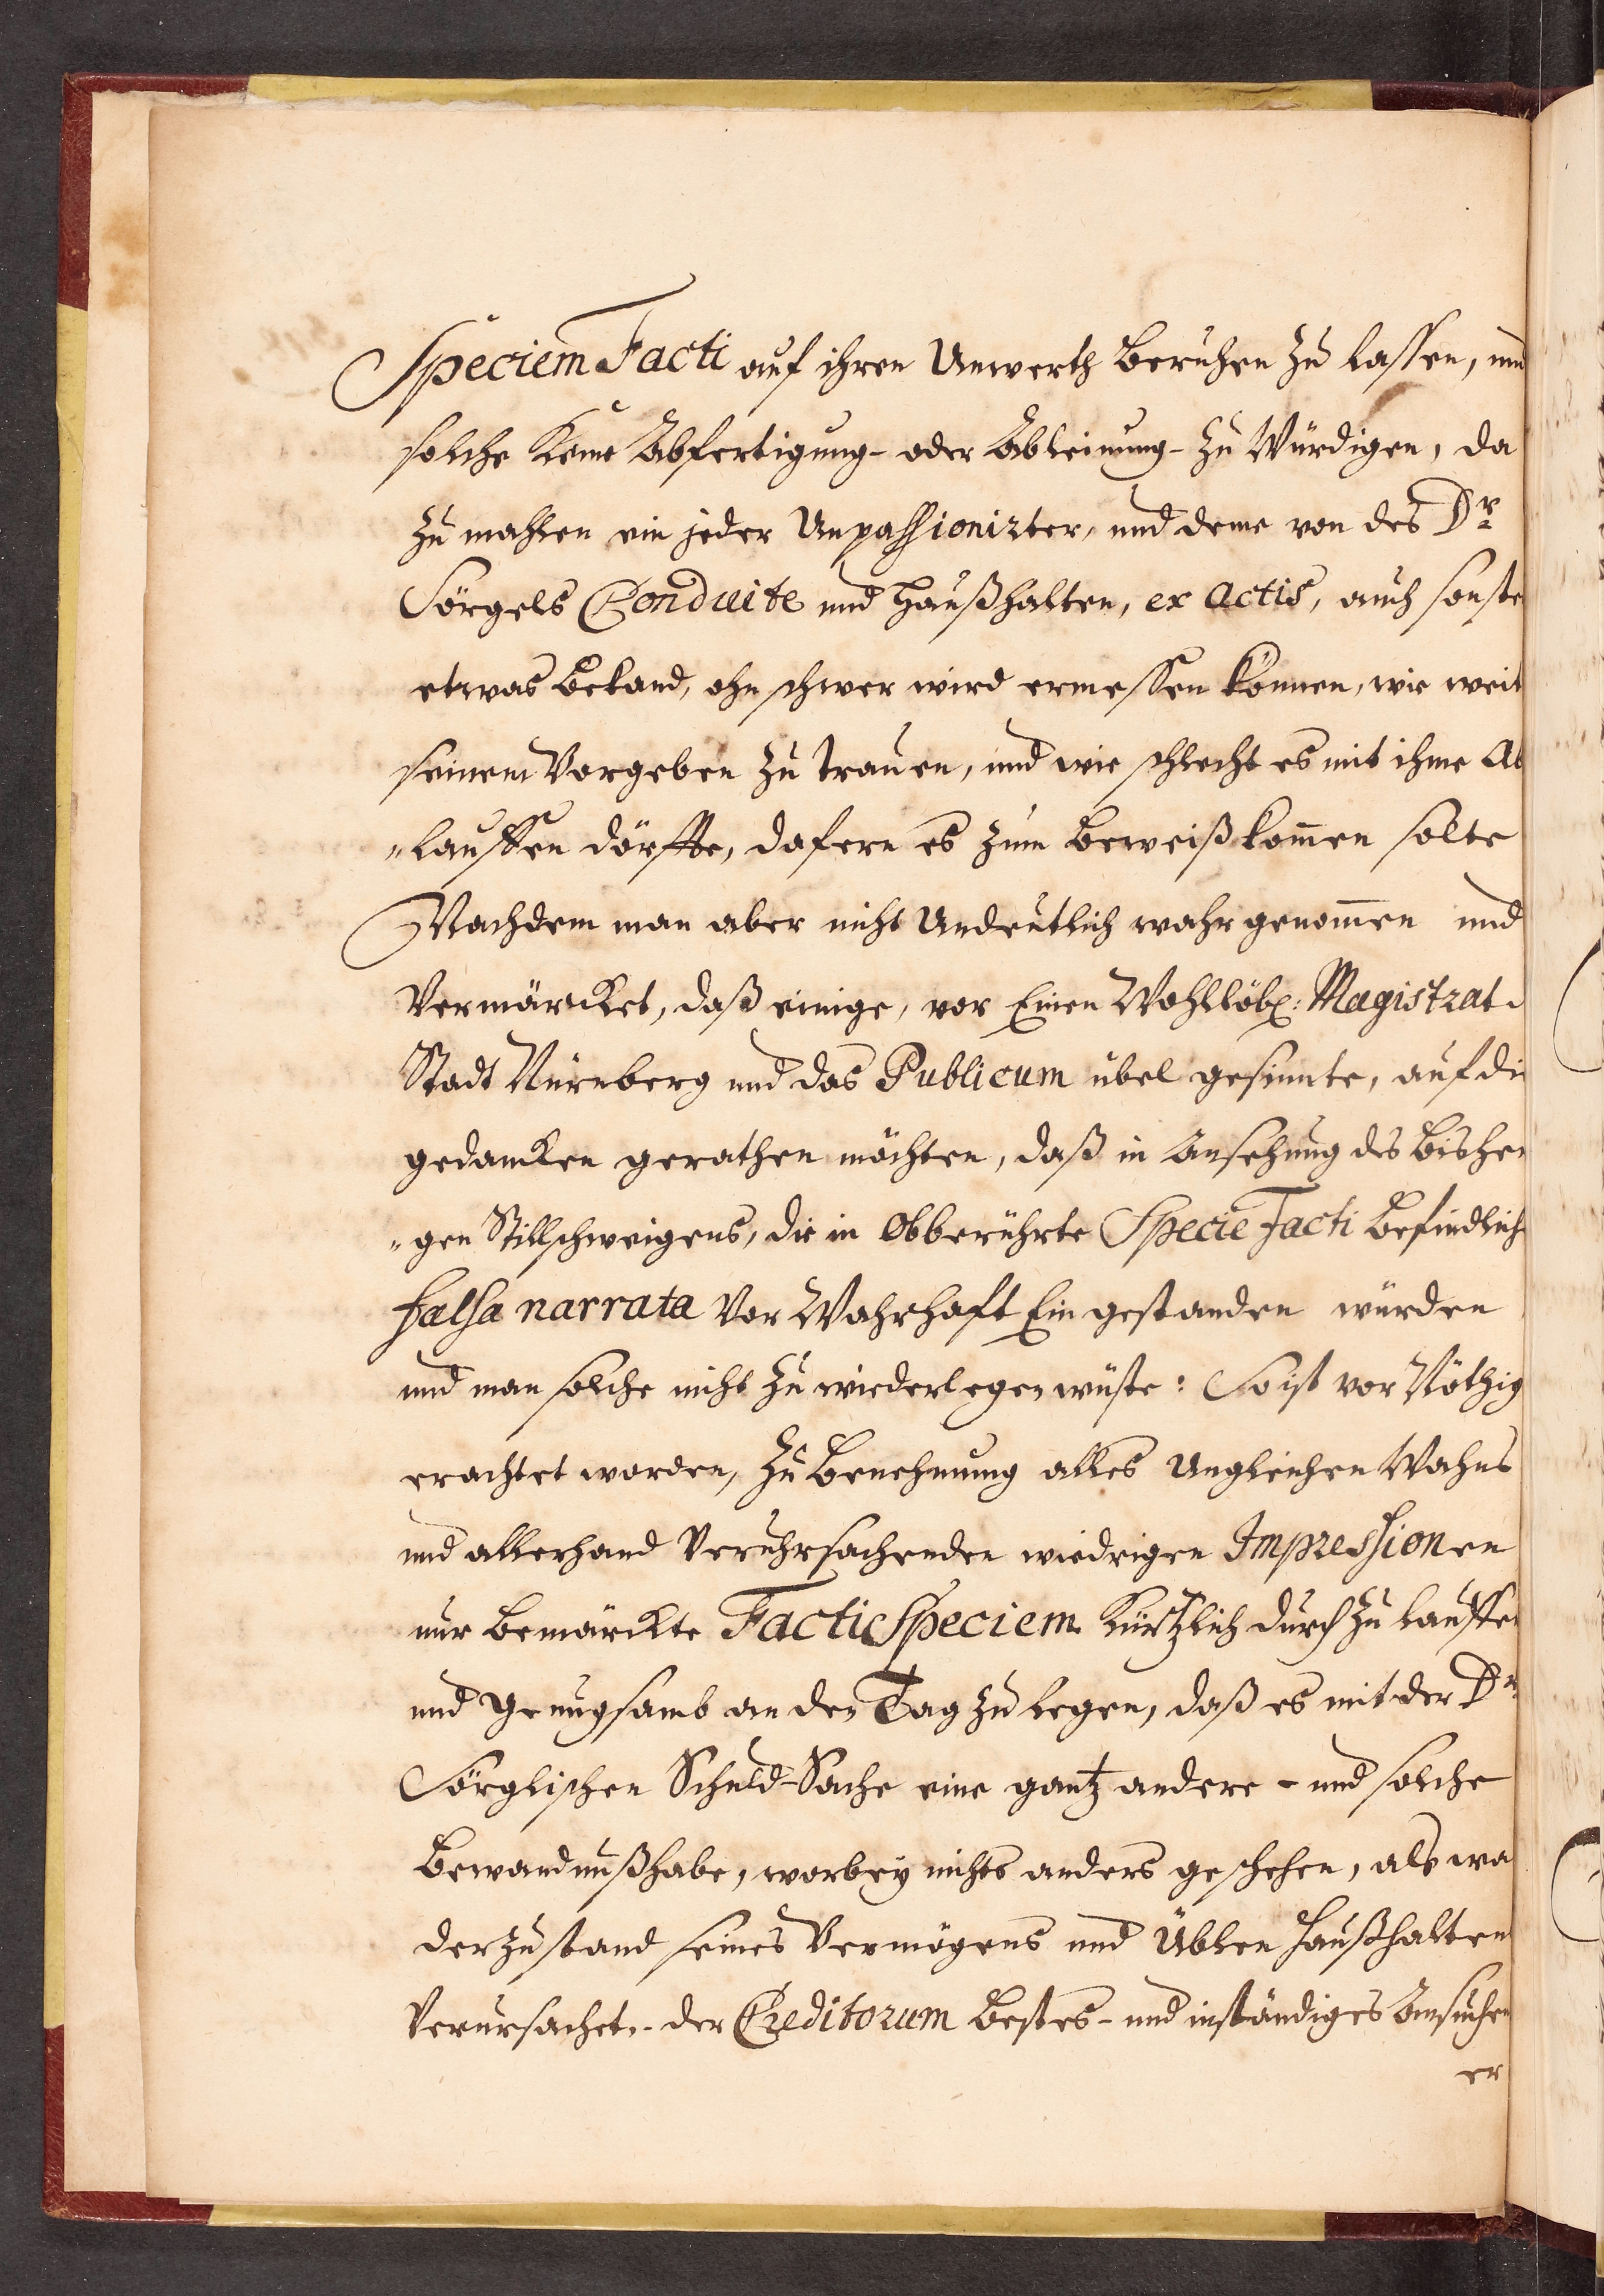 Speciem Facti auf ihren Unwerth beruhen zu lassen, und
solche keine Abfertigung- oder Ableinung- zu Würdigen, da
zu mahlen ein jeder Unpassionirter, und deme von des Dr
Sörgels Conduite und Haußhalten, ex Actis, auch sonste
etwas bekand, ohnschwer wird ermessen können, wie weit
seinem Vorgeben zu trauen, und wie schlecht es mit ihme Ab
"lauffen dörffte, dafern es zum beweiß kom̄en solte
Nachdem man aber nicht Undeutlich wahrgenom̄en und
Vermärcket, daß einige, vor Einen Wohllöbl: Magistrat
Stadt Nürnberg und das Publicum übel gesinnte, auf die
gedancken gerathen möchten, daß in Ansehung des bisheri
"gen Stillschweigens, die in Obberührte Specie Facti befindliche
falsa narrata Vor Wahrhaft Eingestanden würden
und man solche nicht zu wiederlegen wüste: So ist vor Nöthig
erachtet worden, zu benehmung alles Ungleichen Wahns
und allerhand Veruhrsachenden wiedrigen Impressionen
nur bemärckte Facti Speciem kürtzlich durch zu lauffen
und genugsamb an den Tag zu legen, daß es mit der Dr
Sörglischen Schuld-Sache eine gantz andere- und solche
bewandnuß habe, worbey nichts anders geschehen, als wa
der zustand seines Vermögens und Üblen haußhalten
Verursachet,- der Creditorum bestes- und inständiges Ansuchen
er